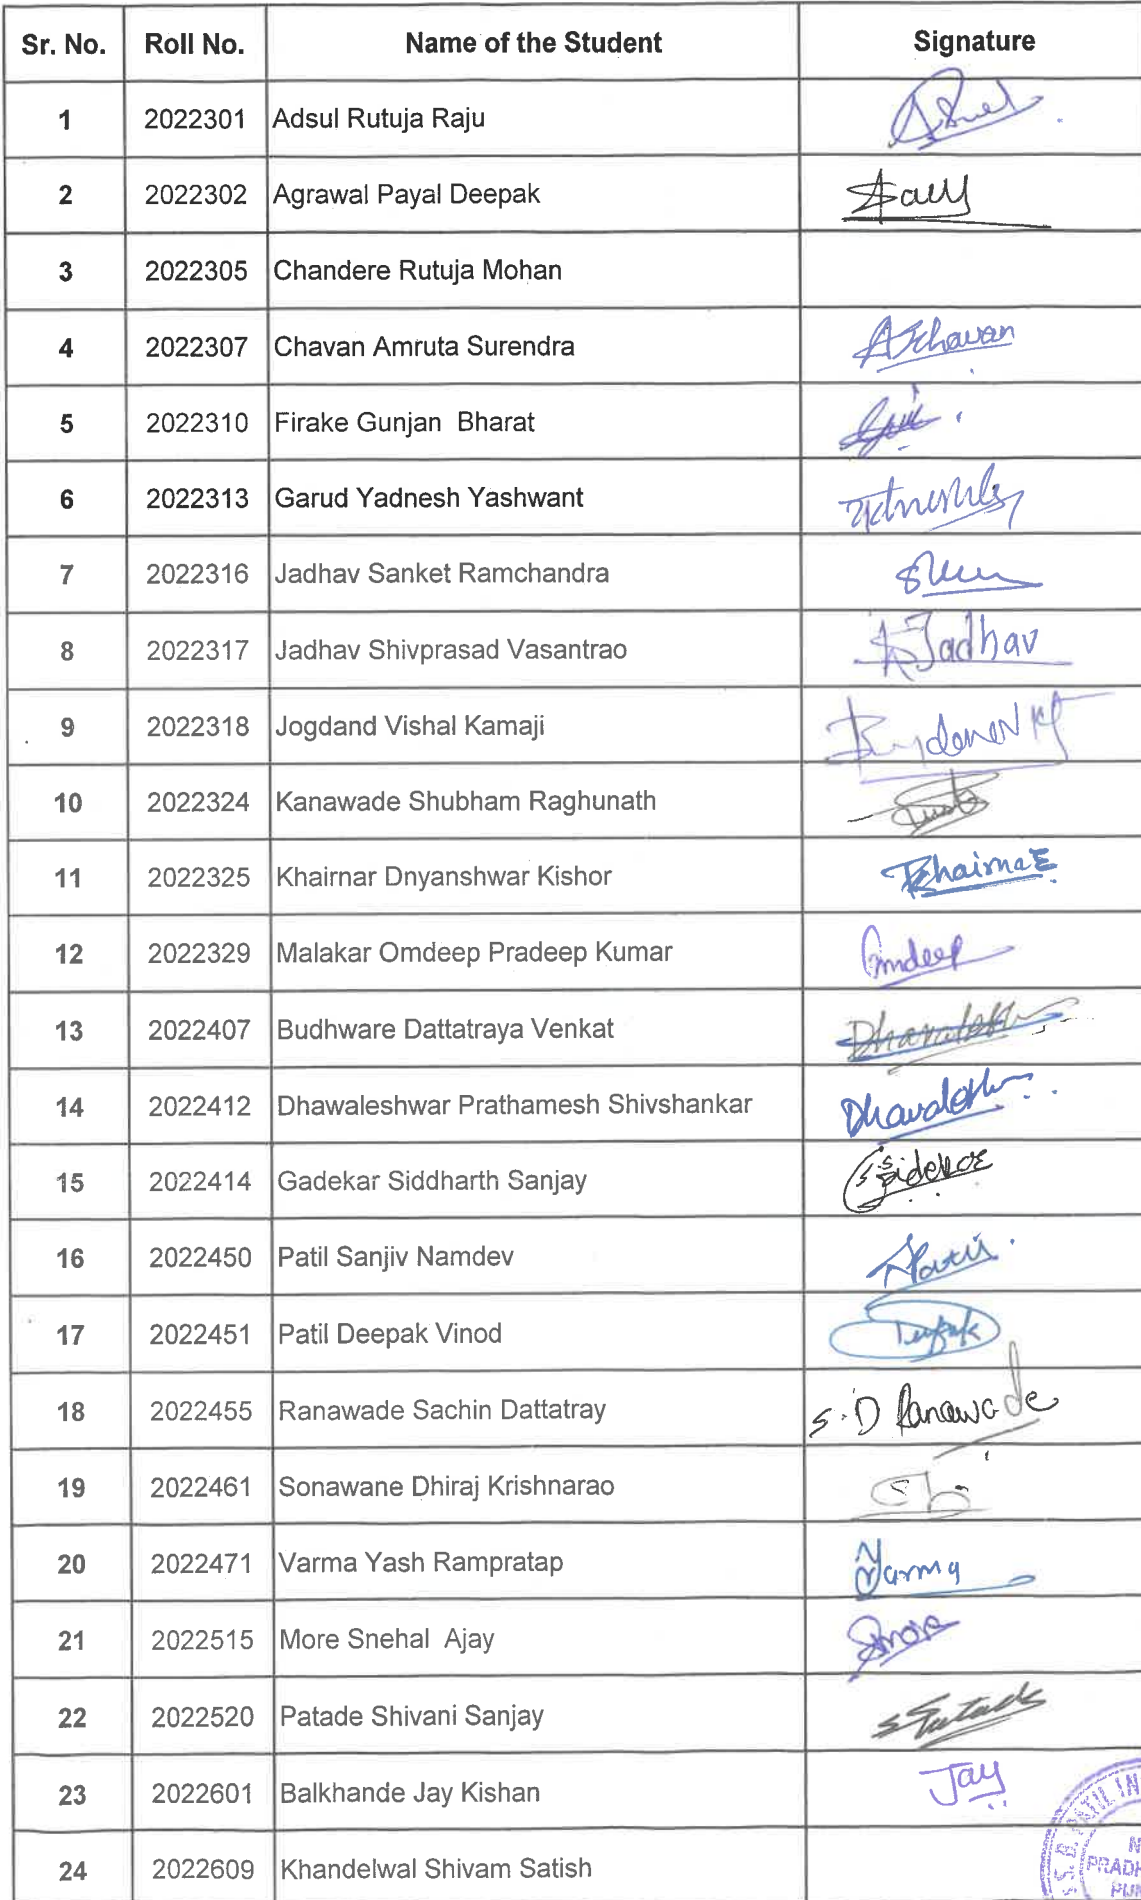 Sr. No. Roll No. Name of the Student Signature
1 2022301 Adsul Rutuja Raju
2 2022302 Agrawal Payal Deepak
3 2022305 Chandere Rutuja Mohan
4 2022307 Chavan Amruta Surendra AChavan
5 2022310 Firake Gunjan Bharat
6 2022313 Garud Yadnesh Yashwant
7 2022316 Jadhav Sanket Ramchandra
8 2022317 Jadhav Shivprasad Vasantrao Jadhav
9 2022318 Jogdand Vishal Kamaji
10 2022324 Kanawade Shubham Raghunath
11 2022325 Khairnar Dnyanshwar Kishor
12 2022329 Malakar Omdeep Pradeep Kumar Omdeep
13 2022407 Budhware Dattatraya Venkat
14 2022412 Dhawaleshwar Prathamesh Shivshankar
15 2022414 Gadekar Siddharth Sanjay
16 2022450 Patil Sanjiv Namdev
17 2022451 Patil Deepak Vinod
18 2022455 Ranawade Sachin Dattatray S.D Ranawade
19 2022461 Sonawane Dhiraj Krishnarao
20 2022471 Varma Yash Rampratap Yarma
21 2022515 More Snehal Ajay
22 2022520 Patade Shivani Sanjay
23 2022601 Balkhande Jay Kishan Jay
24 2022609 Khandelwal Shivam Satish